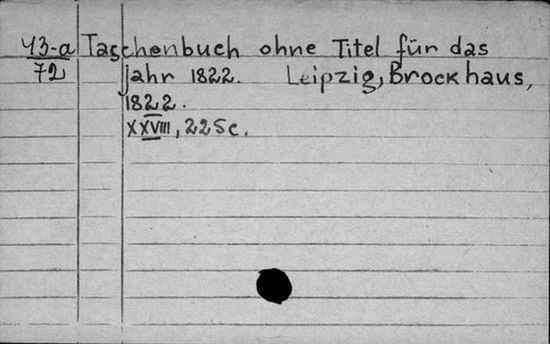 43-a Taschenbuch ohne Titel für das
72 Jahr 1822. Leipzig, Brockhaus,
1822.
XXVIII, 225 c.